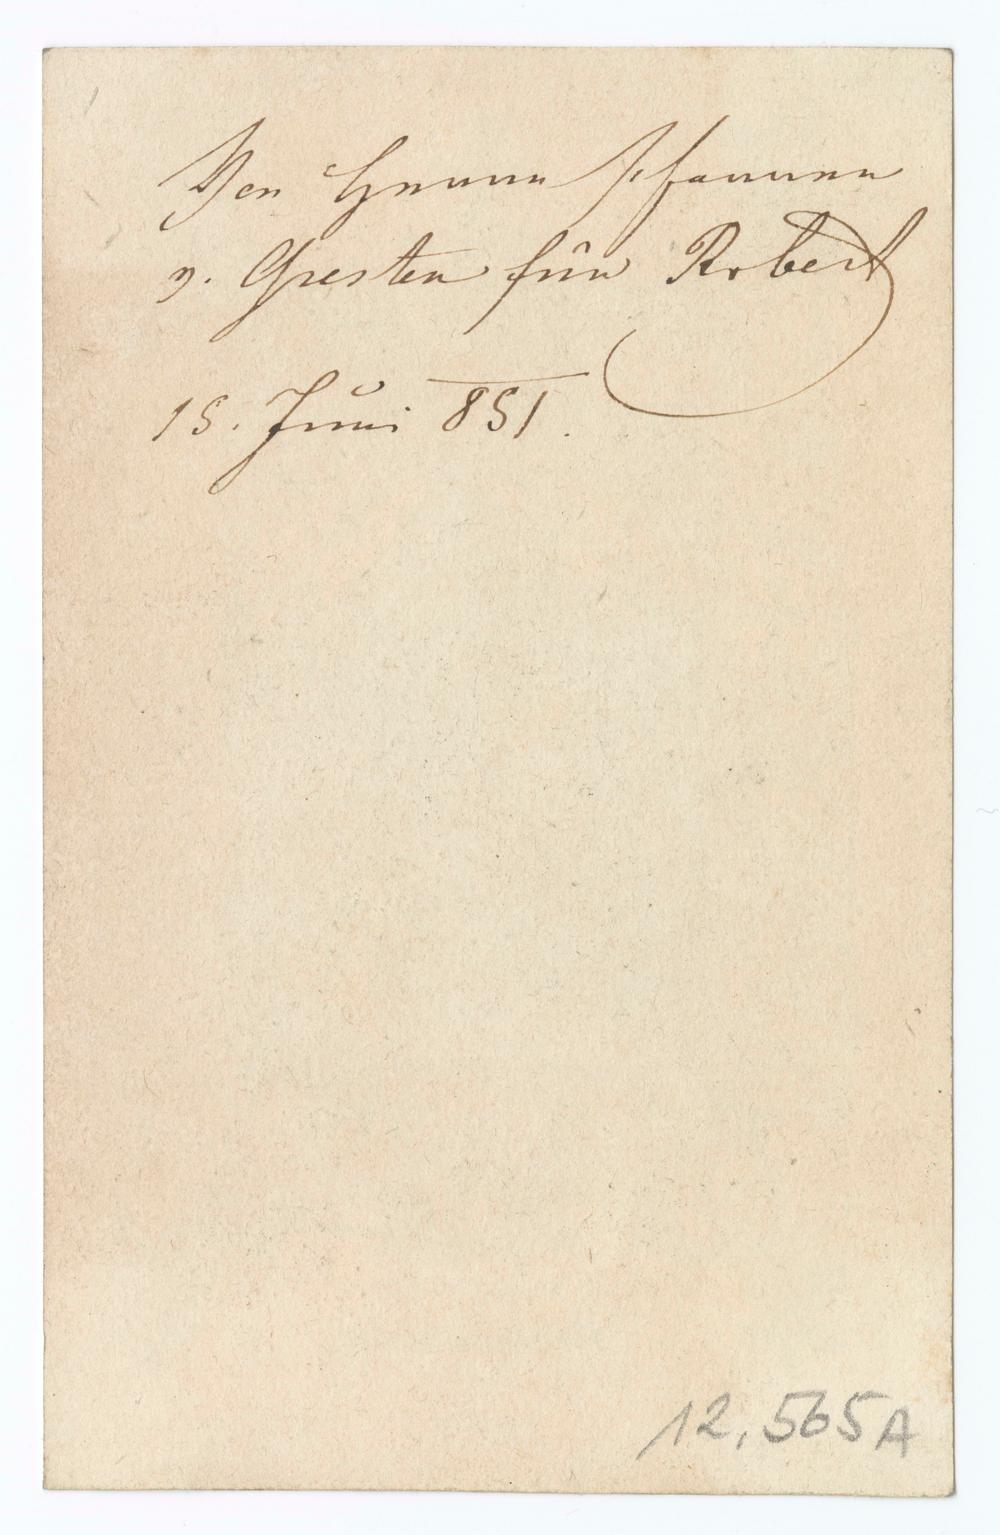 Von Herrn Pfarrer
v. Gresten für Robert
15. Juni 851.
12,565A